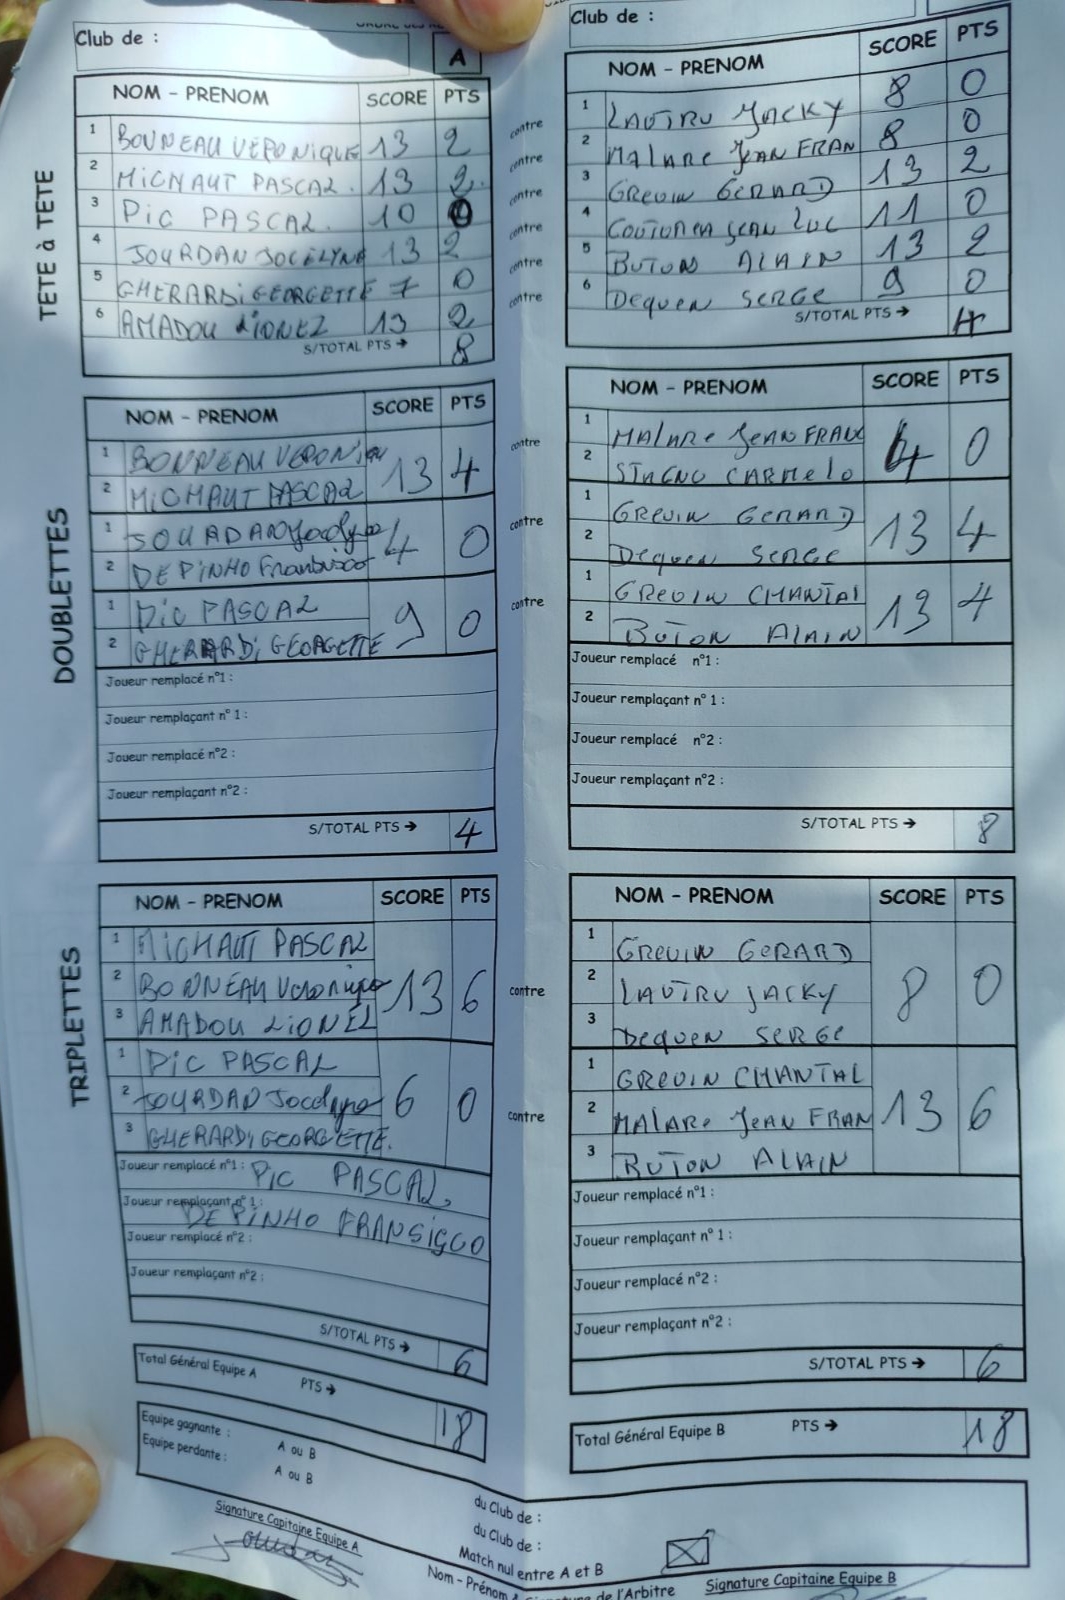 Club de :
A
TETE à TETE
NOM - PRENOM SCORE PTS
1 BONNEAU VERONIQUE 13 2
2 MICHAUT PASCAL. 13 2.
3 PIC PASCAL 10 0
4 JOURDAN JOCELYNE 13 2
5 GHERARDI GEORGETTE 7 0
6 AMADOU LIONEL 13 2
S/TOTAL PTS → 8
contre
contre
contre
contre
contre
contre
Club de :
NOM - PRENOM SCORE PTS
1 LAUTRU JACKY 8 0
2 MALARE JEAN FRAN 8 0
3 GREVIN GERARD 13 2
4 JEAN LUC 11 0
5 BUTON ALAIN 13 2
6 DEQUEN SERGE 9 0
S/TOTAL PTS → 4
DOUBLETTES
NOM - PRENOM SCORE PTS
1 BONNEAU VERONI
2 MICHAUT PASCAL 13 4
1 JOURDAN Jocelyne
2 DE PINHO 4 0
1 PIC PASCAL
2 GHERARDI GEORGETTE 9 0
Joueur remplacé n°1 :
Joueur remplaçant n° 1 :
Joueur remplacé n°2 :
Joueur remplaçant n°2 :
S/TOTAL PTS → 4
contre
contre
contre
NOM - PRENOM SCORE PTS
1 MALARE JEAN FRAN
2 CARMELO 4 0
1 GREVIN GERARD
2 DEQUEN SERGE 13 4
1 GREVIN CHANTAL
2 BUTON ALAIN 13 4
Joueur remplacé n°1 :
Joueur remplaçant n° 1 :
Joueur remplacé n°2 :
Joueur remplaçant n°2 :
S/TOTAL PTS → 8
TRIPLETTES
NOM - PRENOM SCORE PTS
1 MICHAUT PASCAL
2 BONNEAU Véronique 13 6
3 AMADOU LIONEL
1 PIC PASCAL
2 JOURDAN Jocelyne 6 0
3 GHERARDI GEORGETTE.
Joueur remplacé n°1 : PIC PASCAL
Joueur remplaçant n° 1 :
DE PINHO FRANSISCO
Joueur remplacé n°2 :
Joueur remplaçant n°2 :
S/TOTAL PTS → 6
contre
contre
NOM - PRENOM SCORE PTS
1 GREVIN GERARD
2 LAUTRU JACKY 8 0
3 DEQUEN SERGE
1 GREVIN CHANTAL
2 MALARE JEAN FRAN 13 6
3 BUTON ALAIN
Joueur remplacé n°1 :
Joueur remplaçant n° 1 :
Joueur remplacé n°2 :
Joueur remplaçant n°2 :
S/TOTAL PTS → 6
Total Général Equipe A PTS → 18
Total Général Equipe B PTS → 18
Equipe gagnante : A ou B du Club de :
Equipe perdante : A ou B du Club de :
Match nul entre A et B
Signature Capitaine Equipe A
Nom - Prénom & Signature de l'Arbitre
Signature Capitaine Equipe B